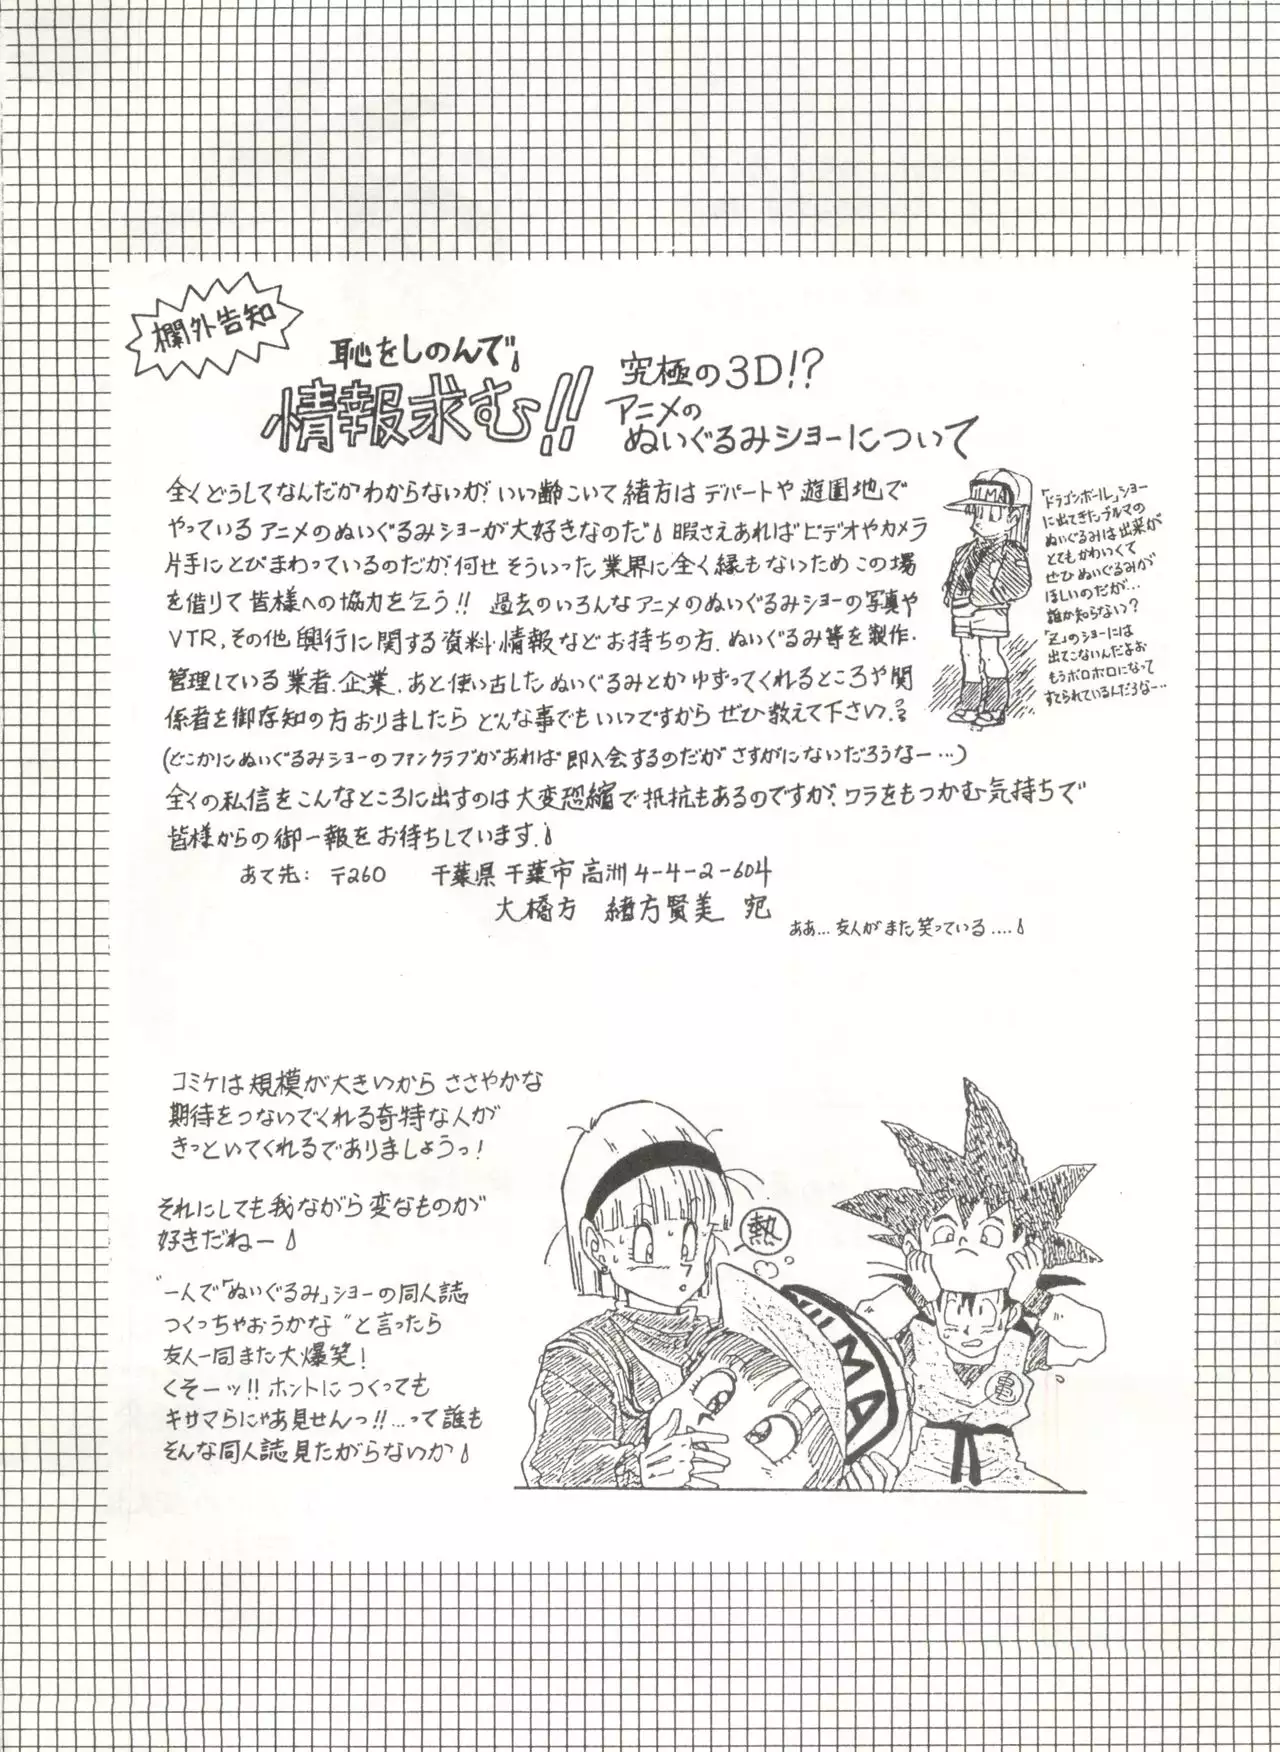 欄外告知
恥をしのんで
情報求む!!
究極の3D!?
アニメの
ぬいぐるみショーについて
全くどうしてなんだかわからないが、いい齢こいて緒方はデパートや遊園地で
やっているアニメのぬいぐるみショーが大好きなのだ。暇さえあればビデオやカメラ
片手にとびまわっているのだが、何せそういった業界に全く縁もないためこの場
を借りて皆様への協力を乞う!! 過去のいろんなアニメのぬいぐるみショーの写真や
VTR、その他興行に関する資料・情報などお持ちの方、ぬいぐるみ等を製作・
管理している業者、企業、あと使い古したぬいぐるみとかゆずってくれるところや関
係者を御存知の方おりましたらどんな事でもいいですからぜひ教えて下さい。
(どこかにぬいぐるみショーのファンクラブがあれば即入会するのだがさすがにないだろうなー…)
全くの私信をこんなところに出すのは大変恐縮で抵抗もあるのですが、ワラをもつかむ気持ちで
皆様からの御一報をお待ちしています。
あて先: 〒260 千葉県千葉市高洲4-4-2-604
大橋方 緒方賢美 宛
ああ…友人がまた笑っている….
「ドラゴンボール」ショー
に出てきたブルマの
ぬいぐるみは出来が
とてもかわいくて
ぜひぬいぐるみが
ほしいのだが…
誰か知らない?
「Z」のショーには
出てこないんだよお
もうボロボロになって
すてられているんだろなー…
ILMA
コミケは規模が大きいからささやかな
期待をつないでくれる奇特な人が
きっといてくれるでありましょうっ!
それにしても我ながら変なものが
好きだねー
"一人で「ぬいぐるみ」ショーの同人誌
つくっちゃおうかな"と言ったら
友人一同また大爆笑!
くそーッ!!ホントにつくっても
キサマらにゃあ見せんっ!!…って誰も
そんな同人誌見たがらないか
熱
ILMA
亀